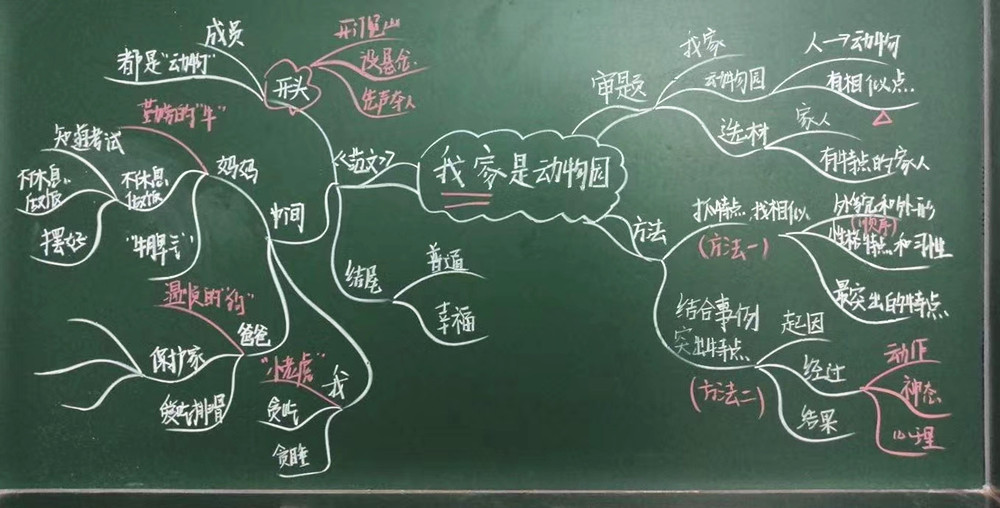 我家是动物园
《范文》
开头
成员
都是"动物"
开门见山
设悬念
先声夺人
中间
妈妈
勤劳的"牛"
不休息、
做饭
知道考试
不休息、
做饭
摆好
"牛脾气"
爸爸
温顺的"狗"
保护家
我
"小老虎"
贪吃
贪睡
结尾
普通
幸福
审题
我家
动物园
人→动物
有相似点
选材
家人
有特点的家人
方法
抓特点、找相似
(方法一)
外貌和外形
(顺序)
性格特点和习性
最突出的特点
结合事例
突出特点
(方法二)
起因
经过
动作
神态
心理
结果